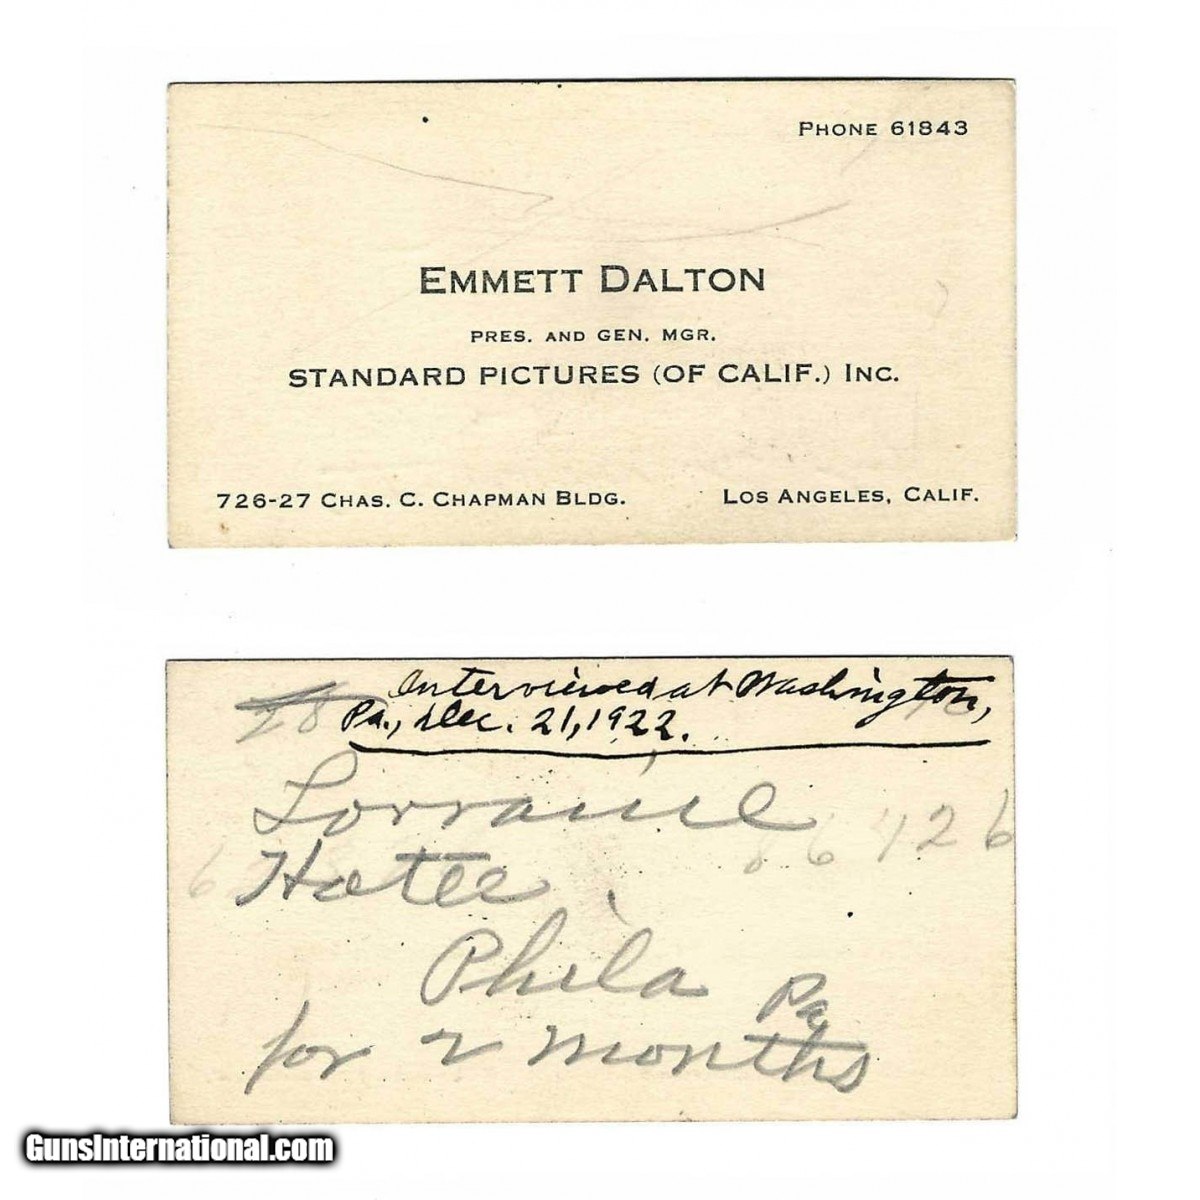 PHONE 61843
EMMETT DALTON
PRES. AND GEN. MGR.
STANDARD PICTURES (OF CALIF.) INC.
726-27 CHAS. C. CHAPMAN BLDG. LOS ANGELES, CALIF.
Interviewed at Washington,
Pa., Dec. 21, 1922.
28
Lorraine
86426
Hotel
6
Phila
Pa
for 2 months
GunsInternational.com